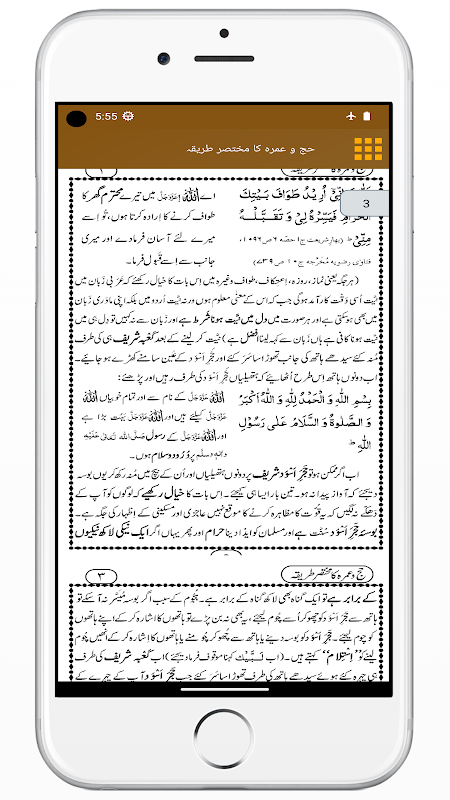 5:55
حج و عمرہ کا مختصر طریقہ
3
اُرِیْدُ طَوَافَ بَیْتِکَ
الْحَرَامِ فَیَسِّرْہُ لِیْ وَ تَقَبَّلْہُ
مِنِّیْ ط (بہارِ شریعت ج۱ حصّہ ۶ ص۱۰۹۶،
فتاوٰی رضویہ مُخَرَّجہ ج۱۰ ص۷۳۹)
اے اللہ عَزَّوَجَلَّ میں تیرے محترم گھر کا
طواف کرنے کا اِرادہ کرتا ہوں، تُو اِسے
میرے لئے آسان فرما دے اور میری
جانب سے اِسے قَبول فرما۔
(ہر جگہ یعنی نماز، روزہ، اِعتِکاف، طواف وغیرہ میں اِس بات کا خیال رکھئے کہ عَرَبی زَبان میں
نیّت اُسی وَقت کارآمد ہوگی جب کہ اس کے معنٰی معلوم ہوں ورنہ نیّت اُردو میں بلکہ اپنی مادَری زَبان
میں بھی ہوسکتی ہے اور ہر صورت میں دل میں نیّت ہونا شَرط ہے اور زَبان سے نہ کہیں تو دل ہی میں
نیّت ہونا کافی ہے ہاں زَبان سے کہہ لینا افضل ہے) نیّت کر لینے کے بعد کعبہ شریف ہی کی طرف
مُنہ کئے سیدھے ہاتھ کی جانب تھوڑا سا سَرَکئے اور حَجَرِ اَسوَد کے عَین سامنے کھڑے ہو جایئے۔
اب دونوں ہاتھ اِس طرح اُٹھایئے کہ ہتھیلیاں حَجَرِ اَسوَد کی طرف رہیں اور پڑھئے:
بِسْمِ اللہِ وَ الْحَمْدُ لِلّٰہِ وَ اللہُ اَکْبَرُ
وَ الصَّلٰوۃُ وَ السَّلَامُ عَلٰی رَسُوْلِ
اللہِ ط
اللہ عَزَّوَجَلَّ کے نام سے اور تمام خوبیاں اللہ
عَزَّوَجَلَّ کیلئے ہیں اور اللہ عَزَّوَجَلَّ بَہُت بڑا ہے
اور اللہ عَزَّوَجَلَّ کے رسول صلَّی اللہ تعالٰی علیہ
واٰلہٖ وسلَّم پر دُرُود و سلام ہوں۔
اب اگر ممکن ہو تو حَجَرِ اَسوَد شریف پر دونوں ہتھیلیاں اور اُن کے بیچ میں مُنہ رکھ کر یوں بوسہ
دیجئے کہ آواز پیدا نہ ہو۔ تین بار ایسا ہی کیجئے۔ اِس بات کا خیال رکھئے کہ لوگوں کو آپ کے
دھکّے نہ لگیں کہ یہ قُوّت کا مظاہَرہ کرنے کا موقع نہیں عاجِزی اور مسکینی کے اِظہار کی جگہ ہے۔
بوسہِ حَجَرِ اَسوَد سُنّت ہے اور مسلمان کو ایذا دینا حرام اور پھر یہاں اگر ایک نیکی لاکھ نیکیوں
حج و عمرہ کا مختصر طریقہ
۳
کے برابر ہے تو ایک گناہ بھی لاکھ گناہ کے برابر ہے۔ ہُجُوم کے سبب اگر بوسہ مُیَسَّر نہ آ سکے تو
ہاتھ سے حَجَرِ اَسوَد کو چھو کر اُسے چوم لیجئے، یہ بھی نہ بن پڑے تو ہاتھوں کا اشارہ کر کے اپنے ہاتھوں
کو چوم لیجئے۔ حَجَرِ اَسوَد کو بوسہ دینے یا ہاتھ سے چھو کر چومنے یا ہاتھوں کا اشارہ کر کے اُنھیں چوم
لینے کو "اِسْتِلام" کہتے ہیں۔ (اب لَبَّیْک کہنا موقوف فرما دیجئے) اب کعبہ شریف کی طرف
ہی چہرہ کئے ہوئے سیدھے ہاتھ کی طرف تھوڑا سا سَرَکئے جب حَجَرِ اَسوَد آپ کے چہرے کے